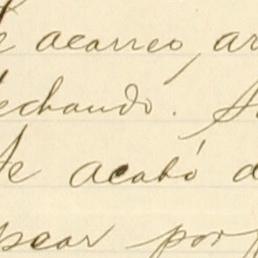 acarreo, ar
echando.
te acabó d
pear por